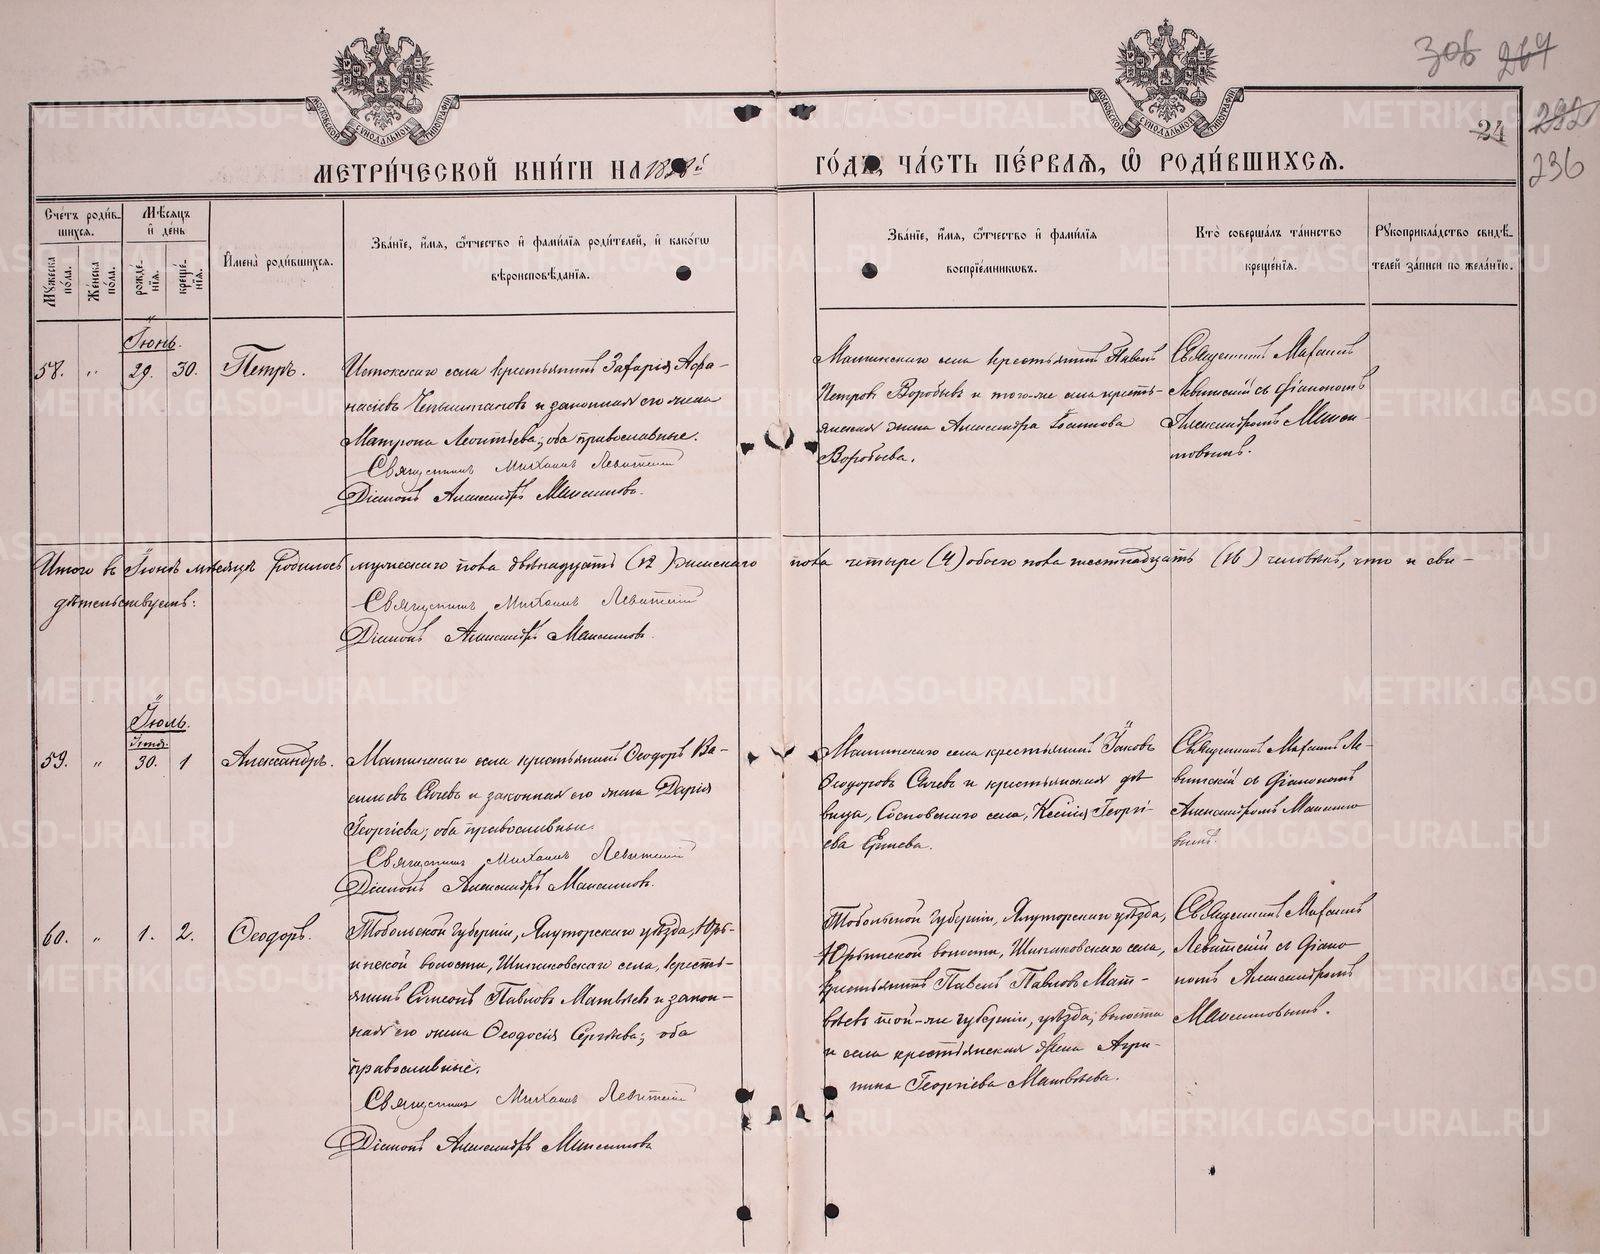 306 264
24
292
236
МОСКОВСКОЙ СѴНОДАЛЬНОЙ ТИПОГРАФІИ
МОСКОВСКОЙ СѴНОДАЛЬНОЙ ТИПОГРАФІИ
МЕТРИ́ЧЕСКОЙ КНИ́ГИ НА 18
ГО́ДЪ, ЧА́СТЬ ПЕ́РВАѦ, Ѡ РОДИ́ВШИХСѦ.
Сче́тъ роди́в-
шихсѧ.
Мꙋ́жеска по́ла.
Же́нска по́ла.
Мѣ́сѧцъ
и҆ де́нь
рожде́-нїѧ.
креще́-нїѧ.
И҆мена̀ роди́вшихсѧ.
Зва́нїе, и҆́мѧ, ѻ҆́тчество и҆ фами́лїѧ роди́телей, и҆ како́гѡ
вѣроисповѣ́данїѧ.
Зва́нїе, и҆́мѧ, ѻ҆́тчество и҆ фами́лїѧ
воспрїе́мникѡвъ.
Кто̀ соверша́лъ та́инство
креще́нїѧ.
Рꙋкоприкла́дство свидѣ́-
телей за́писи по жела́нїю.
Іюнь.
58. " 29. 30. Петръ.
Истокскаго села крестьянинъ Захарія Аѳа-
насіевъ и законная его жена
Матрона Леонтьева; оба православные.
Священникъ Михаилъ Левитскій
Діаконъ Александръ Максимовъ.
Маминскаго села крестьянинъ Павелъ
Петровъ Воробьевъ и того-же села кресть-
янская жена Александра Іоаннова
Воробьева.
Священникъ Михаилъ
Левитскій съ діакономъ
Александромъ Макси-
мовымъ.
Итого въ Іюнѣ мѣсяцѣ родилось мужескаго пола двѣнадцать (12) женскаго пола четыре (4) обоего пола шестнадцать (16) человѣкъ, что и сви-
дѣтельствуемъ:
Священникъ Михаилъ Левитскій
Діаконъ Александръ Максимовъ.
Іюль.
Іюня.
59. " 30. 1 Александръ.
Маминскаго села крестьянинъ Ѳеодоръ Ва-
сильевъ Сычевъ и законная его жена Дарія
Георгіева; оба православные.
Священникъ Михаилъ Левитскій
Діаконъ Александръ Максимовъ.
Маминскаго села крестьянинъ Іаковъ
Ѳеодоровъ Сычевъ и крестьянская дѣ-
вица, Сосновскаго села, Ксенія Георгі-
ева
Священникъ Михаилъ Ле-
витскій съ діакономъ
Александромъ Максимо-
вымъ.
60. " 1. 2. Ѳеодоръ.
Тобольской губерніи, Ялуторскаго уѣзда, Юрь-
инской волости, села, кресть-
янинъ Симеонъ Павловъ Матвѣевъ и закон-
ная его жена Ѳеодосія Сергѣева; оба
православные.
Священникъ Михаилъ Левитскій
Діаконъ Александръ Максимовъ
Тобольской губерніи, Ялуторскаго уѣзда,
Юрьинской волости, села,
крестьянинъ Павелъ Павловъ Мат-
вѣевъ той-же губерніи, уѣзда, волости
и села крестьянская жена Агри-
пина Георгіева Матвѣева.
Священникъ Михаилъ
Левитскій съ діако-
номъ Александромъ
Максимовымъ.
METRIKI.GASO-URAL.RU